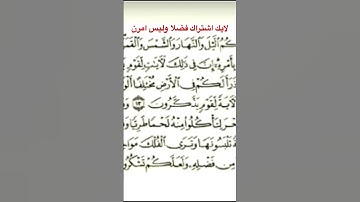 لايك اشتراك فضلا وليس امرن
كُمُ ٱلَّيْلَ وَٱلنَّهَارَ وَٱلشَّمْسَ وَٱلْقَمَ
بِأَمْرِهِۦٓ إِنَّ فِى ذَٰلِكَ لَءَايَٰتٍ لِّقَوْمٍ
ذَرَأَ لَكُمْ فِى ٱلْأَرْضِ مُخْتَلِفًا
لَءَايَةً لِّقَوْمٍ يَذَّكَّرُونَ ١٣
حْرَ لِتَأْكُلُوا۟ مِنْهُ لَحْمًا طَرِيًّا
ةً تَلْبَسُونَهَا وَتَرَى ٱلْفُلْكَ مَوَاخِ
مِن فَضْلِهِۦ وَلَعَلَّكُمْ تَشْكُرُ